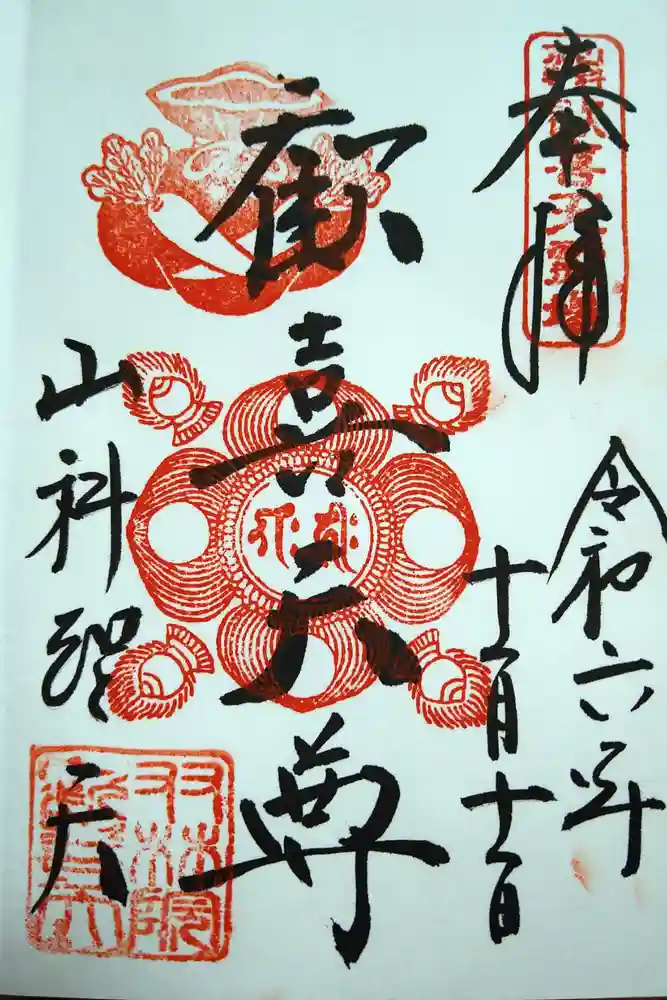 奉拝
令和六年
十一月十一日
歓喜天尊
山科聖天
双林院